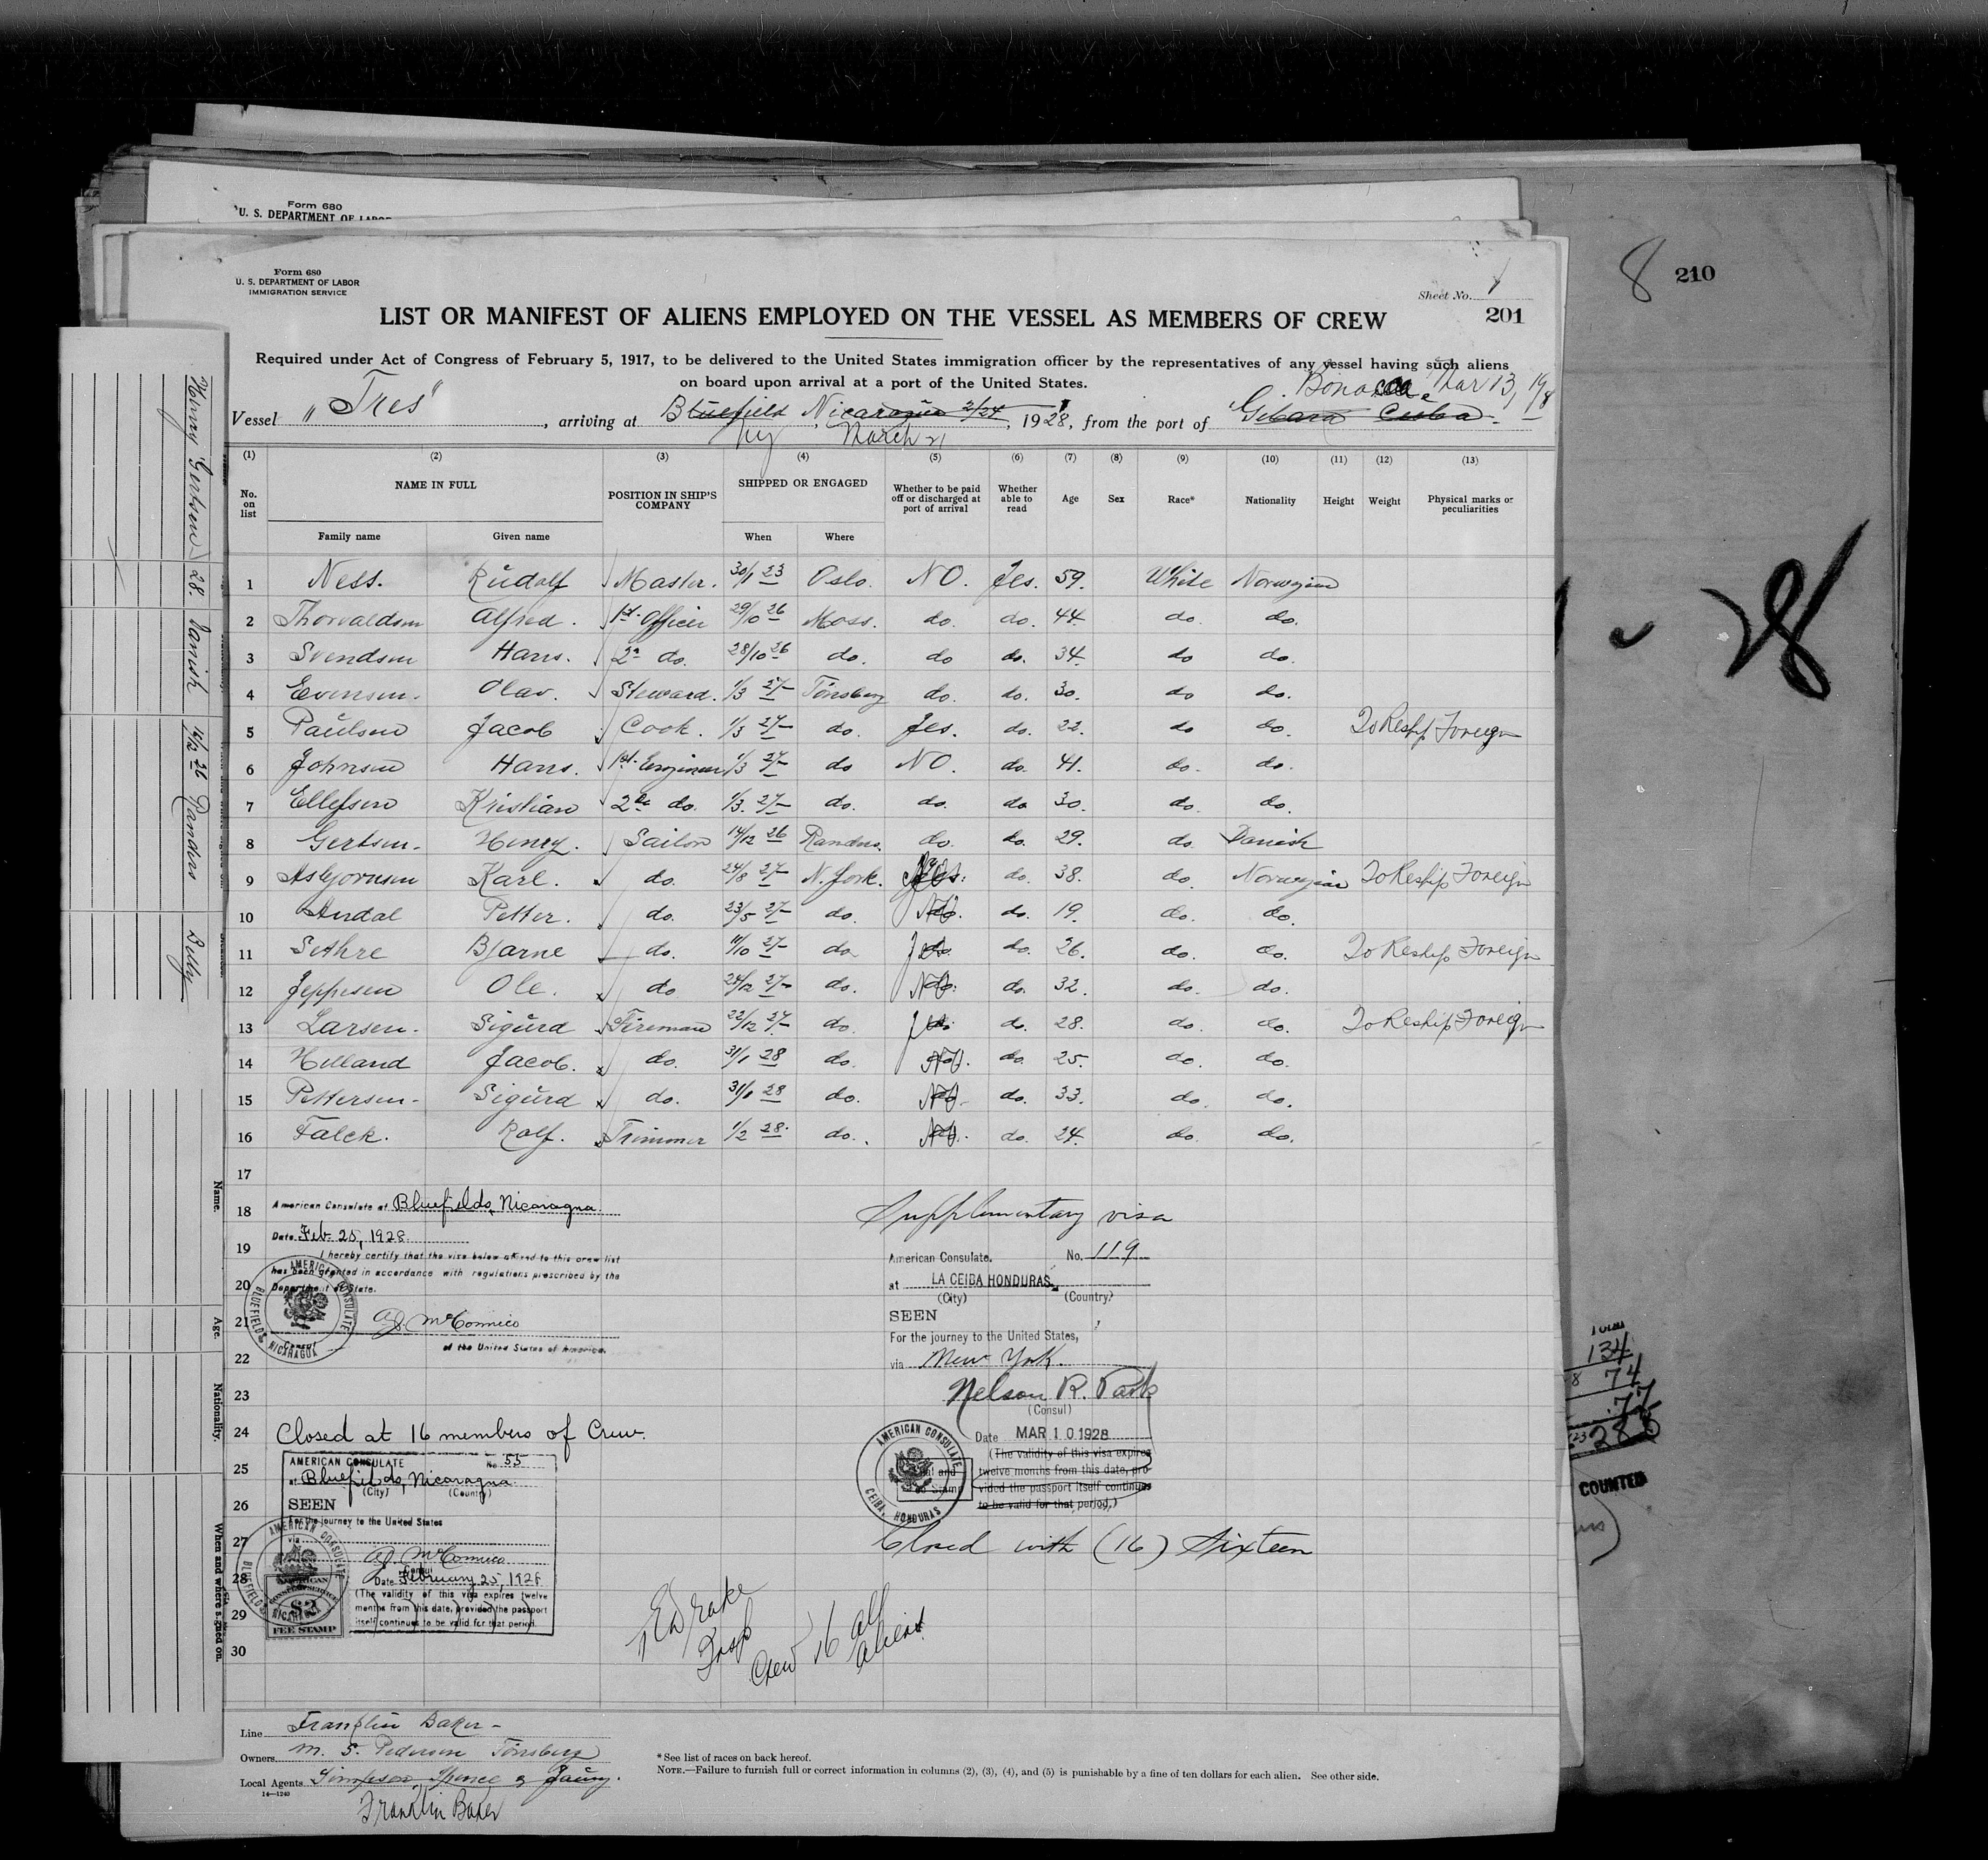 Form 680
U. S. DEPARTMENT OF LABOR
8 210
Form 680
U. S. DEPARTMENT OF LABOR
IMMIGRATION SERVICE
Sheet No. 1
LIST OR MANIFEST OF ALIENS EMPLOYED ON THE VESSEL AS MEMBERS OF CREW
201
Required under Act of Congress of February 5, 1917, to be delivered to the United States immigration officer by the representatives of any vessel having such aliens
on board upon arrival at a port of the United States.
Bonacca Mar 13, 1928
Vessel "Tres", arriving at Bluefield Nicaragua 2/24, 1928, from the port of Gibara Cuba.
Ny March 21
(1) (2) (3) (4) (5) (6) (7) (8) (9) (10) (11) (12) (13)
No. on list NAME IN FULL POSITION IN SHIP'S COMPANY SHIPPED OR ENGAGED Whether to be paid off or discharged at port of arrival Whether able to read Age Sex Race* Nationality Height Weight Physical marks or peculiarities
Family name Given name When Where
1 Ness. Rudolf Master. 30/1 23 Oslo. NO. Yes. 59. White Norwegian
2 Thorvaldsen Alfred. 1st Officer 29/10 26 Moss. do. do. 44 do. do.
3 Svendsen Hans. 2n do. 28/10 26 do. do do. 34. do do.
4 Evensen. Olav. Steward. 1/3 27 Tönsberg do. do. 30. do do.
5 Paulsen Jacob Cook. 1/3 27 do. Yes. do. 22. do do. To Reship Foreign
6 Johnsen Hans. 1st Engineer 1/3 27 do NO. do. 41. do. do.
7 Ellefsen Kristian 2de do. 1/3 27 do. do. do 30. do. do.
8 Gertsen. Henry. Sailor 14/12 26 Randers. do. do. 29. do. Danish
9 Asbjornsen Karl. do. 24/8 27 N. York. do. 38. do. Norwegian To Reship Foreign
10 Andal Petter. do. 23/5 27 do. No. do. 19. do. do.
11 Sethre Bjarne do. 11/10 27 do Yes do. 26. do. do. To Reship Foreign
12 Jeppesen Ole. do 24/12 27 do. No. do. 32. do. do.
13 Larsen. Sigurd Fireman 22/12 27 do. Yes do. 28. do. do. To Reship Foreign
14 Helland Jacob. do. 31/1 28 do. No. do. 25. do. do.
15 Pettersen. Sigurd do. 31/1 28 do. No. do. 33. do. do.
16 Falck. Ralf. Trimmer 1/2 28. do. No. do. 24. do. do.
17
18
19
20
21
22
23
24
25
26
27
28
29
30
American Consulate at Bluefields, Nicaragua.
Date Feb. 25, 1928.
I hereby certify that the visa below affixed to this crew list
has been granted in accordance with regulations prescribed by the
Department of State.
A. J. McConnico
Consul
of the United States of America.
AMERICAN CONSULATE
BLUEFIELDS NICARAGUA
Closed at 16 members of Crew.
AMERICAN CONSULATE No. 55
at Bluefields, Nicaragua.
(City) (Country)
SEEN
For the journey to the United States
via
A. J. McConnico
Consul
Date February 25, 1928
(The validity of this visa expires twelve
months from this date, provided the passport
itself continues to be valid for that period.)
AMERICAN CONSULATE
BLUEFIELDS NICARAGUA
AMERICAN
$2
FEE STAMP
Supplementary visa
American Consulate. No. 119
at LA CEIBA HONDURAS.
(City) (Country)
SEEN
For the journey to the United States,
via New York.
Nelson R. Park
(Consul)
Date MAR 10 1928
(The validity of this visa expires
twelve months from this date, pro-
vided the passport itself continues
to be valid for that period.)
AMERICAN CONSULATE
CEIBA, HONDURAS
Closed with (16) Sixteen
E Drake
Insp
Crew 16 all
aliens
Line Franklin Baker
Owners M. S. Pedersen Tönsberg
Local Agents Simpson, Spence & Young.
14—1240
Franklin Baker
*See list of races on back hereof.
NOTE.—Failure to furnish full or correct information in columns (2), (3), (4), and (5) is punishable by a fine of ten dollars for each alien. See other side.
Henry Gertsen 28. Danish 14/12 26 Randers
Name.
Age.
Nationality.
When and where signed on.
28
Total
134
74
77
285
COUNTED